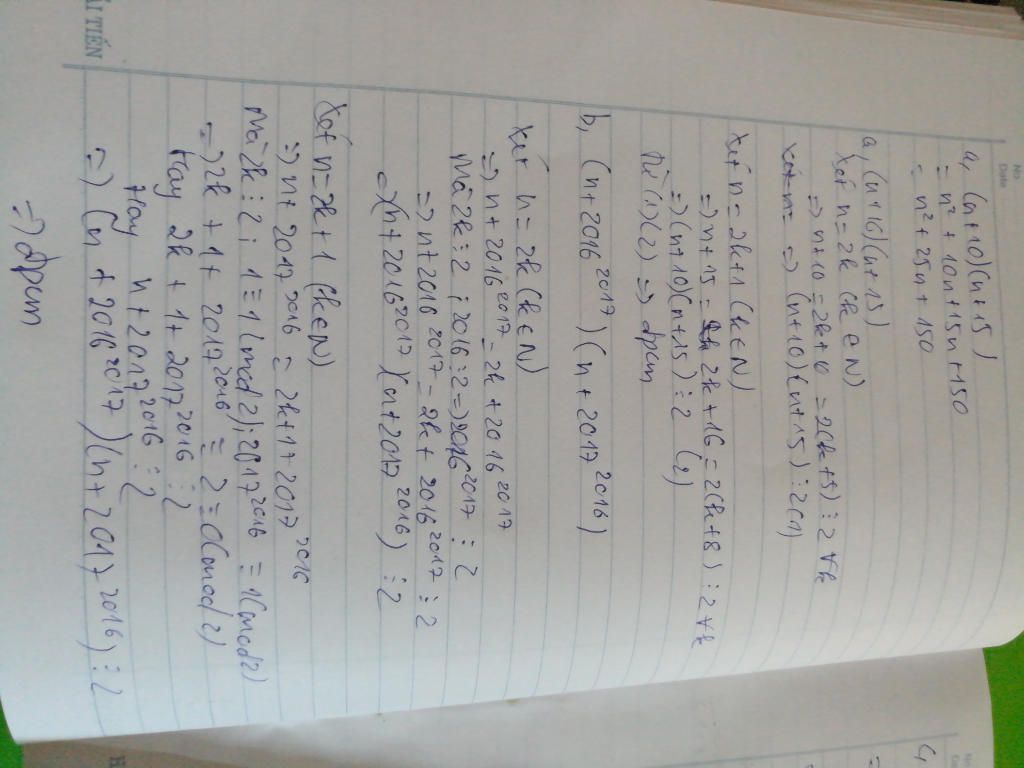 No.
Date
a, (n+10)(n+15)
= n² + 10n + 15n + 150
= n² + 25n + 150
a, (n+10)(n+15)
Xét n = 2k (k ∈ N)
=> n+10 = 2k+10 = 2(k+5) ⋮ 2 ∀k
=> (n+10)(n+15) ⋮ 2 (1)
Xét n = 2k+1 (k ∈ N)
=> n+15 = 2k+16 = 2(k+8) ⋮ 2 ∀k
=> (n+10)(n+15) ⋮ 2 (2)
Từ (1)(2) => đpcm
b, (n+2016²⁰¹⁷)(n+2017²⁰¹⁶)
Xét n = 2k (k ∈ N)
=> n+2016²⁰¹⁷ = 2k+2016²⁰¹⁷
Mà 2k ⋮ 2 ; 2016 ⋮ 2 => 2016²⁰¹⁷ ⋮ 2
=> n+2016²⁰¹⁷ = 2k + 2016²⁰¹⁷ ⋮ 2
=> (n+2016²⁰¹⁷)(n+2017²⁰¹⁶) ⋮ 2
Xét n = 2k+1 (k ∈ N)
=> n+2017²⁰¹⁶ = 2k+1+2017²⁰¹⁶
Mà 2k ⋮ 2 ; 1 ≡ 1 (mod 2) ; 2017²⁰¹⁶ ≡ 1 (mod 2)
=> 2k + 1 + 2017²⁰¹⁶ ≡ 2 ≡ 0 (mod 2)
Hay 2k + 1 + 2017²⁰¹⁶ ⋮ 2
Hay n + 2017²⁰¹⁶ ⋮ 2
=> (n + 2016²⁰¹⁷)(n + 2017²⁰¹⁶) ⋮ 2
=> đpcm
ẢI TIẾN